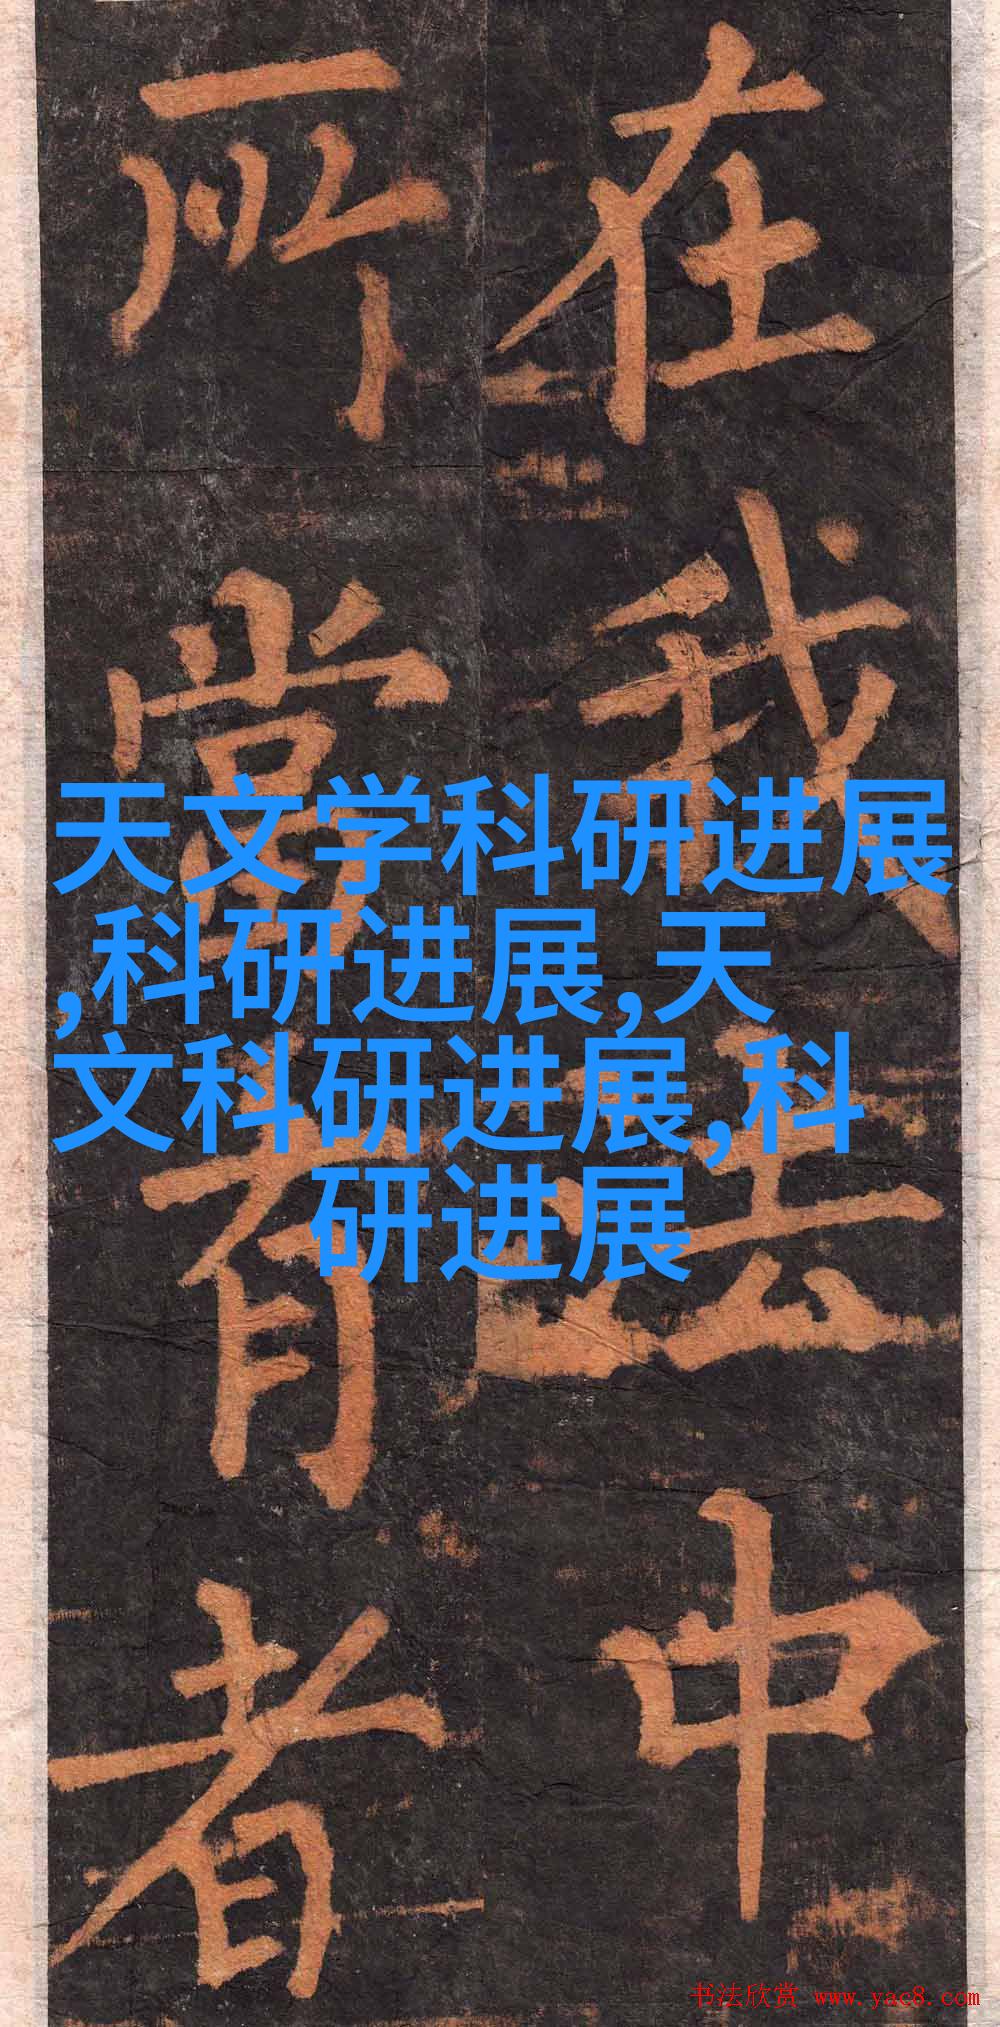 在我法中
所當有者
天文学科研进展
,科研进展,天
文科研进展,科
研进展
书法欣赏 www.yac8.com